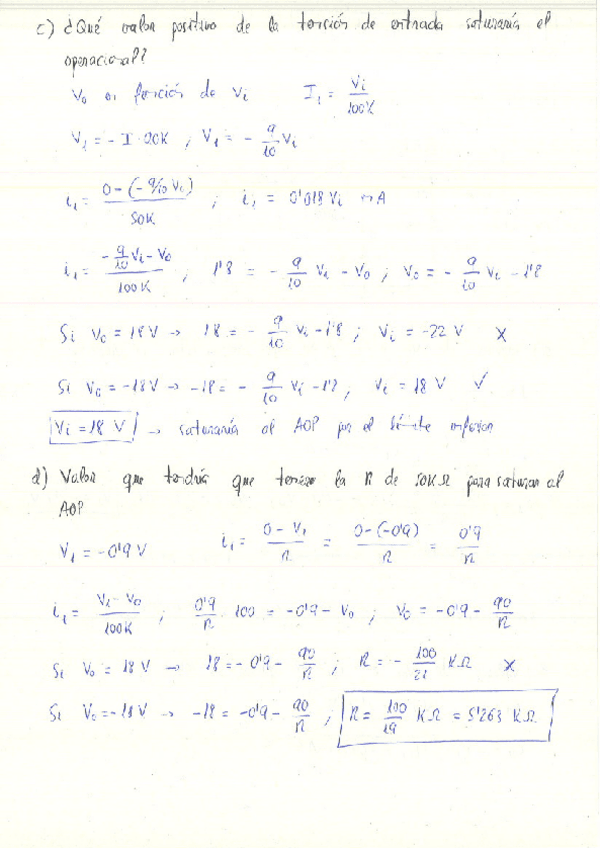 c) ¿Qué valor positivo de la tensión de entrada saturaría el
operacional?
V₀ en función de Vᵢ I₁ = Vᵢ/100K
V₁ = - I · 90K , V₁ = - 9/10 Vᵢ
i₁ = 0-(-9/10 Vᵢ)/50K ; i₁ = 0'018 Vᵢ mA
i₁ = -9/10 Vᵢ - V₀/100K ; 1'8 = - 9/10 Vᵢ - V₀ ; V₀ = - 9/10 Vᵢ - 1'8
Si V₀ = 18 V → 18 = - 9/10 Vᵢ - 1'8 ; Vᵢ = -22 V X
Si V₀ = -18 V → -18 = - 9/10 Vᵢ - 1'8 , Vᵢ = 18 V ✓
Vᵢ = 18 V → saturaría al AOP por el límite inferior
d) Valor que tendría que tener la R de 50K Ω para saturar al
AOP
V₁ = -0'9 V i₁ = 0 - V₁/R = 0-(-0'9)/R = 0'9/R
i₁ = V₁ - V₀/100K ; 0'9/R · 100 = -0'9 - V₀ ; V₀ = -0'9 - 90/R
Si V₀ = 18 V → 18 = -0'9 - 90/R ; R = - 100/21 KΩ X
Si V₀ = -18 V → -18 = -0'9 - 90/R ; R = 100/19 KΩ = 5'263 KΩ